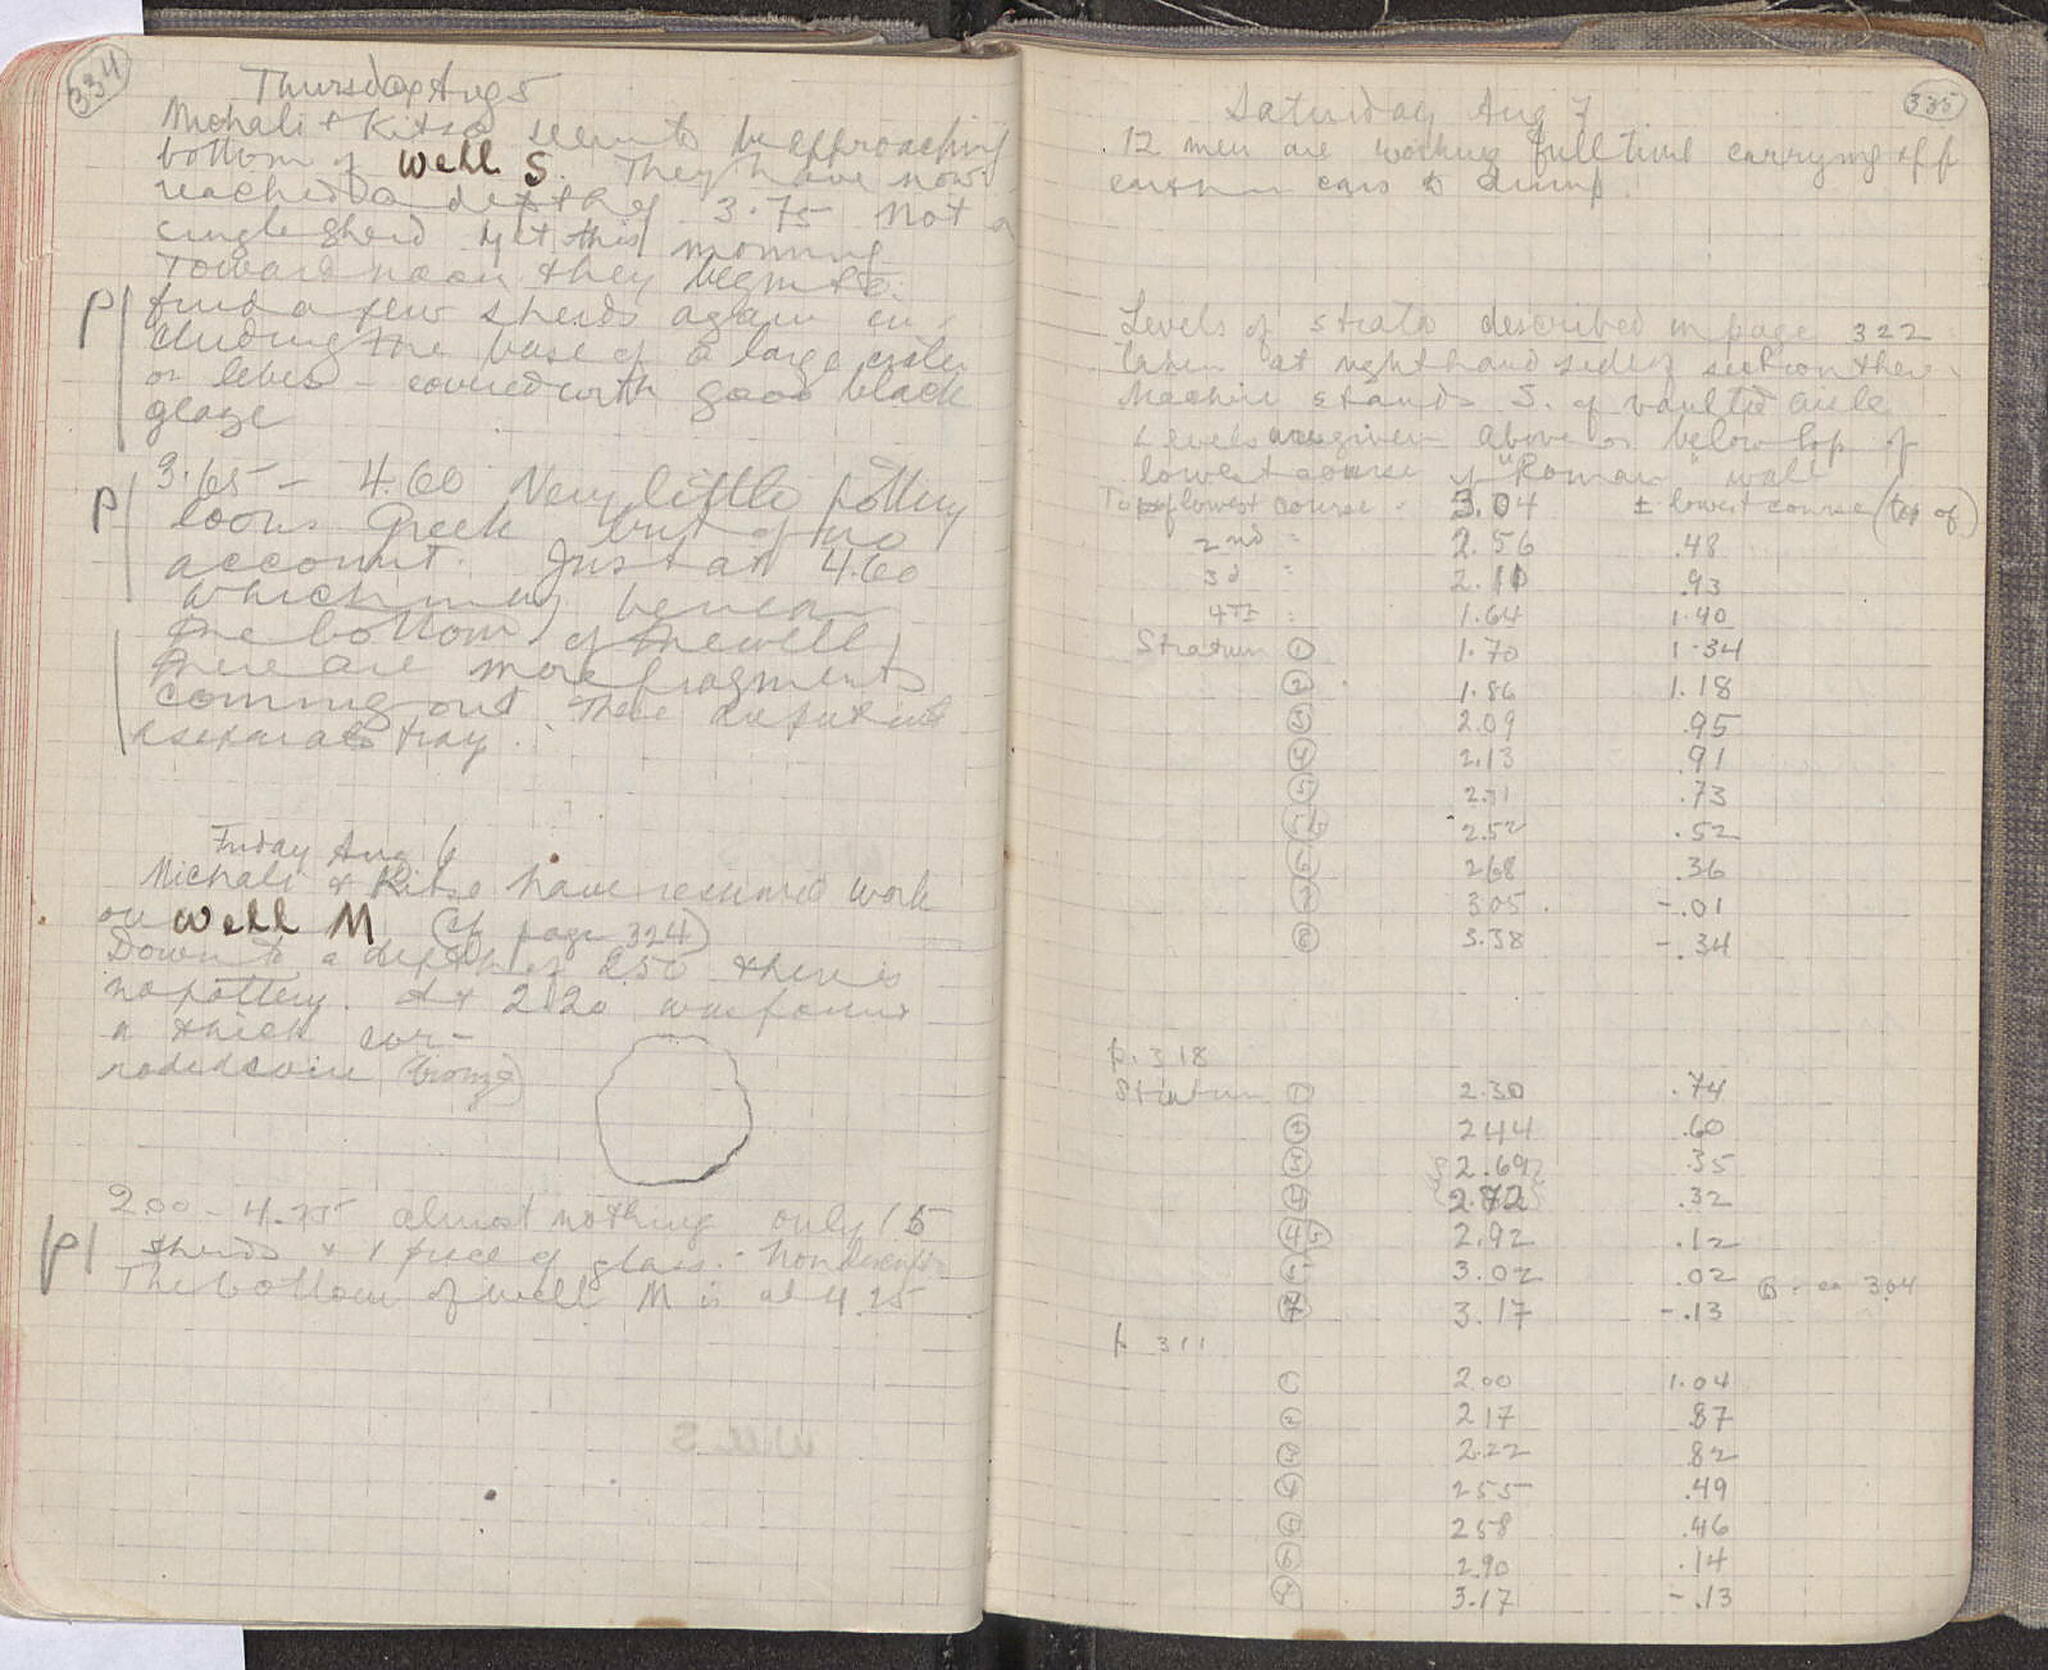 334
Thursday Aug 5
Michali & Kitso seem to be approaching
bottom of Well S. They have now
reached a depth of 3.75 Not a
single sherd yet this morning
Toward noon they begin to
P find a few sherds again in-
cluding the base of a large crater
or lebes - covered with good black
glaze
3.65 - 4.60 Very little pottery
P looks Greek but of no
account. Just at 4.60
which may be near
the bottom of the well
there are more fragments
coming out. These are put in
a separate tray.
Friday Aug 6
Michali & Kitso have resumed work
on Well M (cf page 324)
Down to a depth of 2.50 there is
no pottery. At 2.20 was found
a thick cor-
roded coin (bronze)
2.00 - 4.25 almost nothing only 15
P sherds & 1 piece of glass.
The bottom of well M is at 4.25
335
Saturday Aug 7
12 men are working full time carrying off
earth in cars to dump.
Levels of strata described on page 322
taken at right hand side of section there.
Machine stands S. of vaulted aisle
Levels are given above or below top of
lowest course of "Roman" wall
Top of lowest course 3.04 ± lowest course (top of)
2nd " 2.56 .48
3d " 2.11 .93
4th " 1.64 1.40
Stratum 1 1.70 1.34
2 1.86 1.18
3 2.09 .95
4 2.13 .91
5 2.31 .73
5b 2.52 .52
6 2.68 .36
7 3.05 -.01
8 3.38 -.34
p. 318
Stratum 1 2.30 .74
2 2.44 .60
3 2.69 .35
4 2.72 .32
4 5 2.92 .12
3.02 .02 3.04
7 3.17 -.13
p 311
1 2.00 1.04
2 2.17 .87
3 2.22 .82
4 2.55 .49
5 2.58 .46
6 2.90 .14
7 3.17 -.13